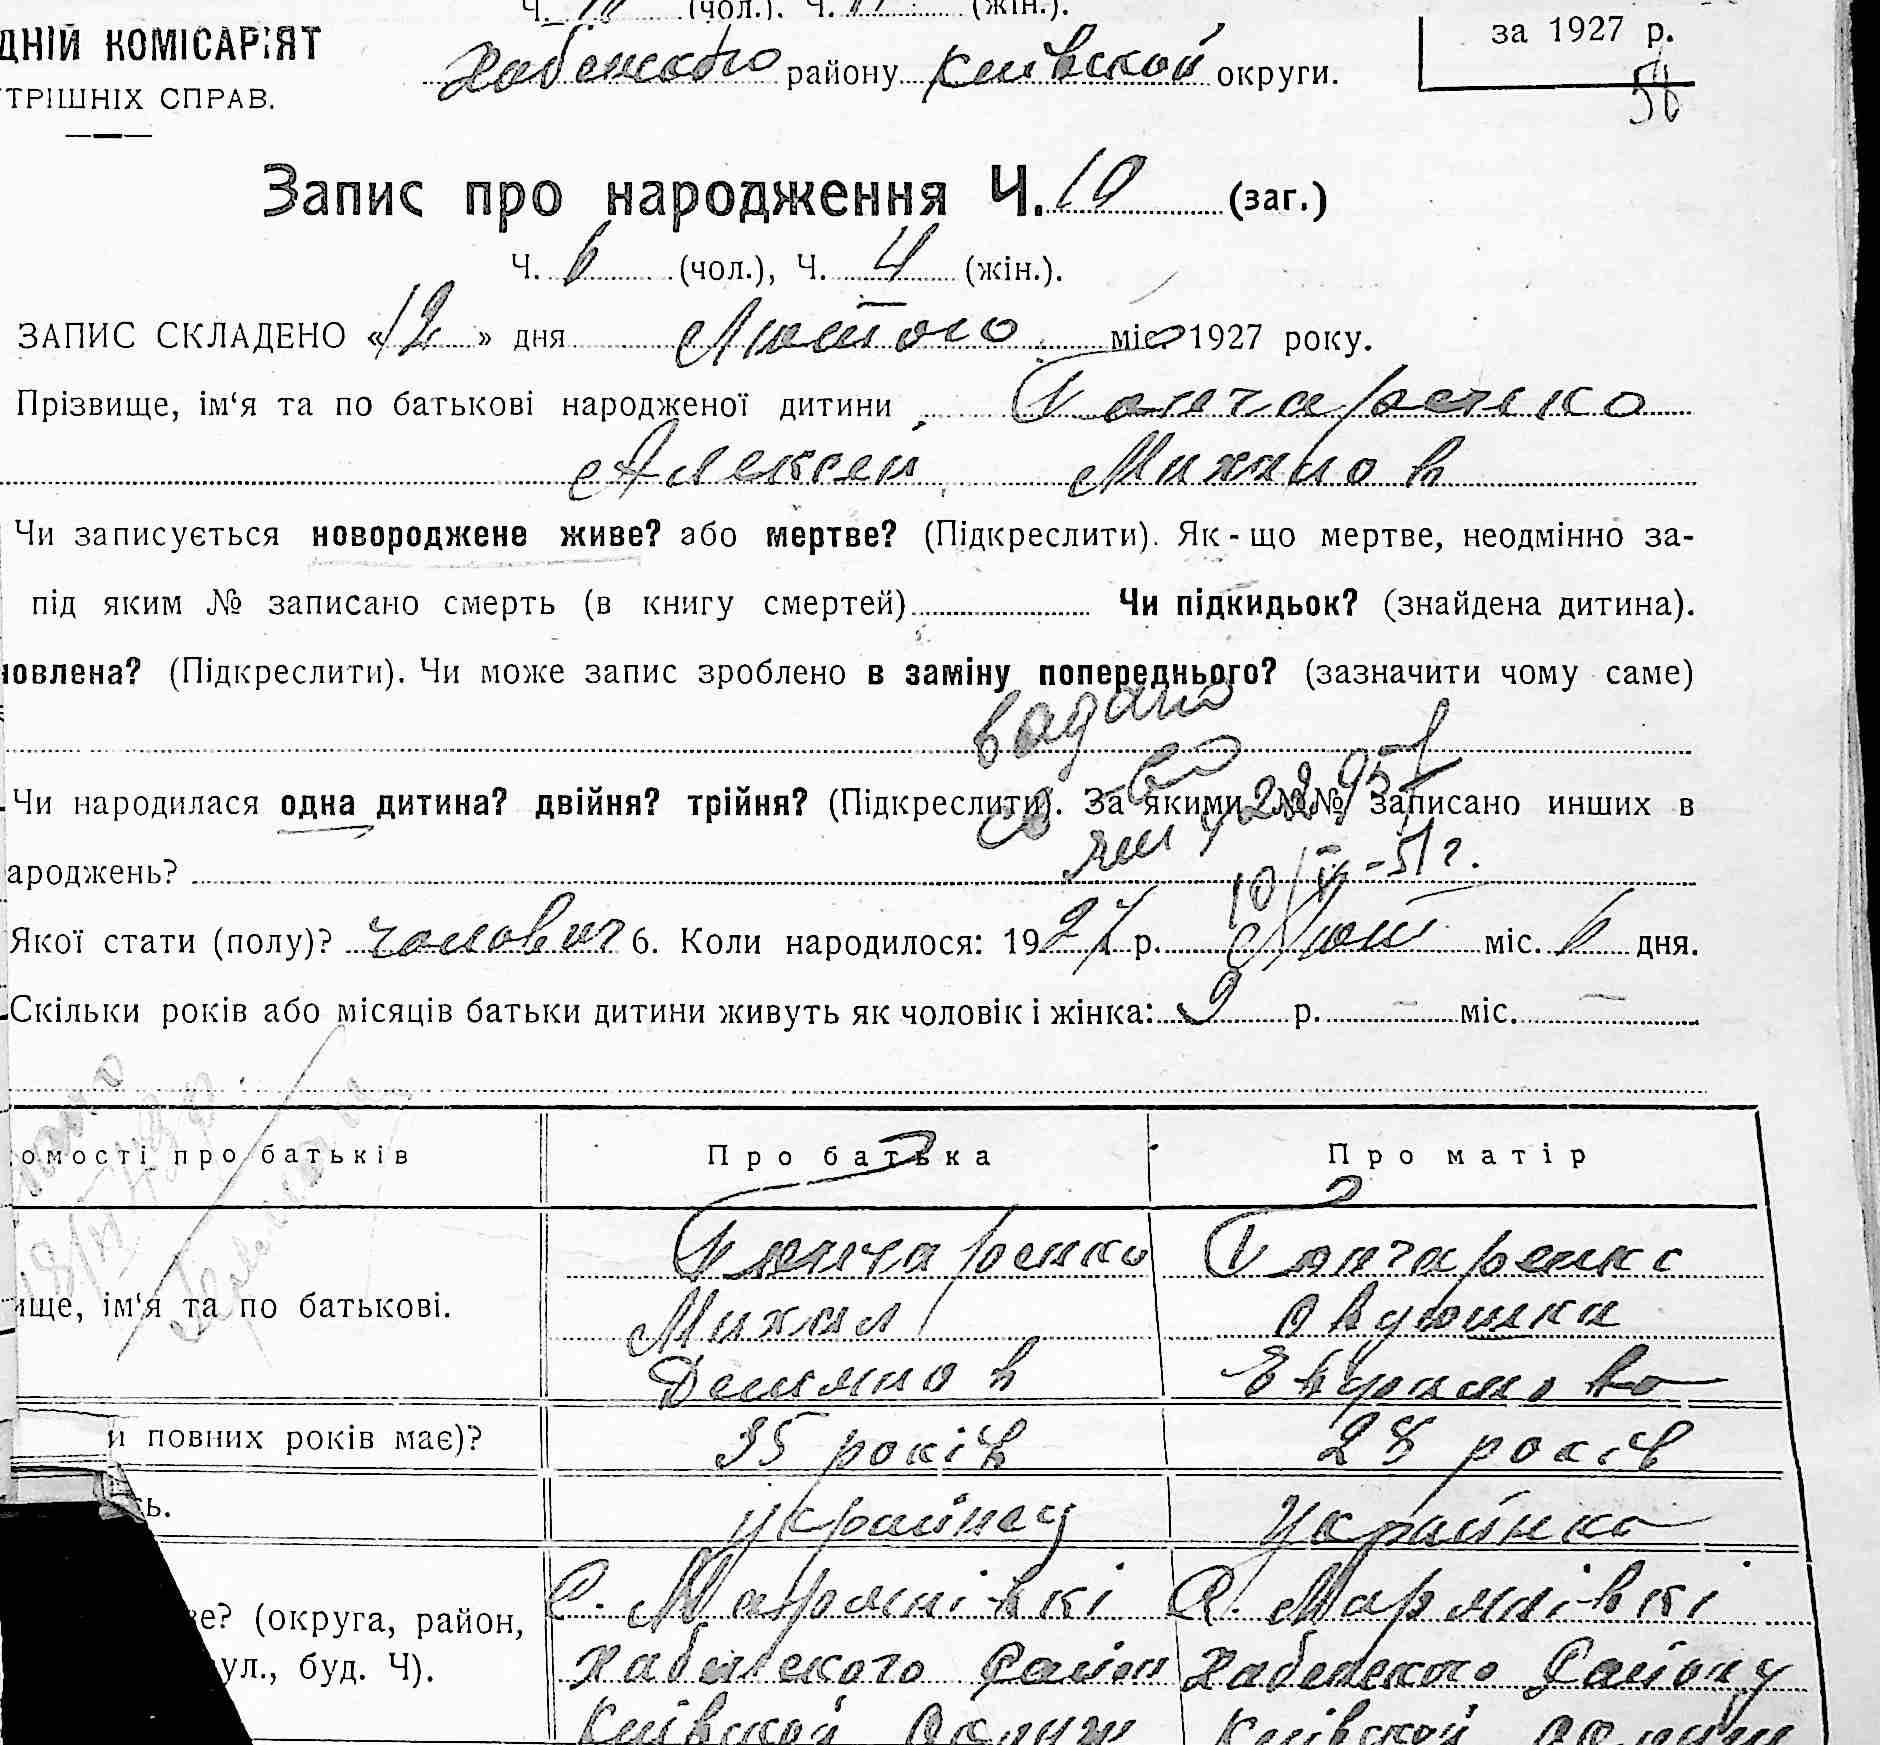 (чол.), Ч. (жін.).
ДНІЙ КОМІСАР'ЯТ
ТРІШНІХ СПРАВ.
Хабенского району Киівской округи.
за 1927 р.
58
Запис про народження Ч. 10 (заг.)
Ч. 6 (чол.), Ч. 4 (жін.).
ЗАПИС СКЛАДЕНО «12» дня Лютого міс. 1927 року.
Прізвище, ім'я та по батькові народженої дитини Гончаренко
Алексей Михайлов
Чи записується новороджене живе? або мертве? (Підкреслити). Як-що мертве, неодмінно за-
під яким № записано смерть (в книгу смертей) Чи підкидьок? (знайдена дитина).
новлена? (Підкреслити). Чи може запис зроблено в заміну попереднього? (зазначити чому саме)
видано
св-во
Чи народилася одна дитина? двійня? трійня? (Підкреслити). За якими №№ записано инших в
ароджень?
10/IV-51 г.
Якої стати (полу)? человіч 6. Коли народилося: 1927 р. Лют міс. 6 дня.
Скільки років або місяців батьки дитини живуть як чоловік і жінка: 9 р. — міс. —
омості про батьків Про батька Про матір
ище, ім'я та по батькові. Гончаренко Гончаренко
Михал
Демяно в
и повних років має)? 35 років 28 років
сь. украйнец Украйнка
е? (округа, район, С. Мартинівкі С. Мартинівкі
ул., буд. Ч). Хабенского Район Хабенского Району
Киівской Киівской